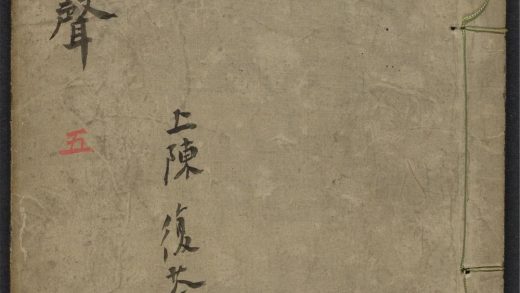 聲
五
上陳 復